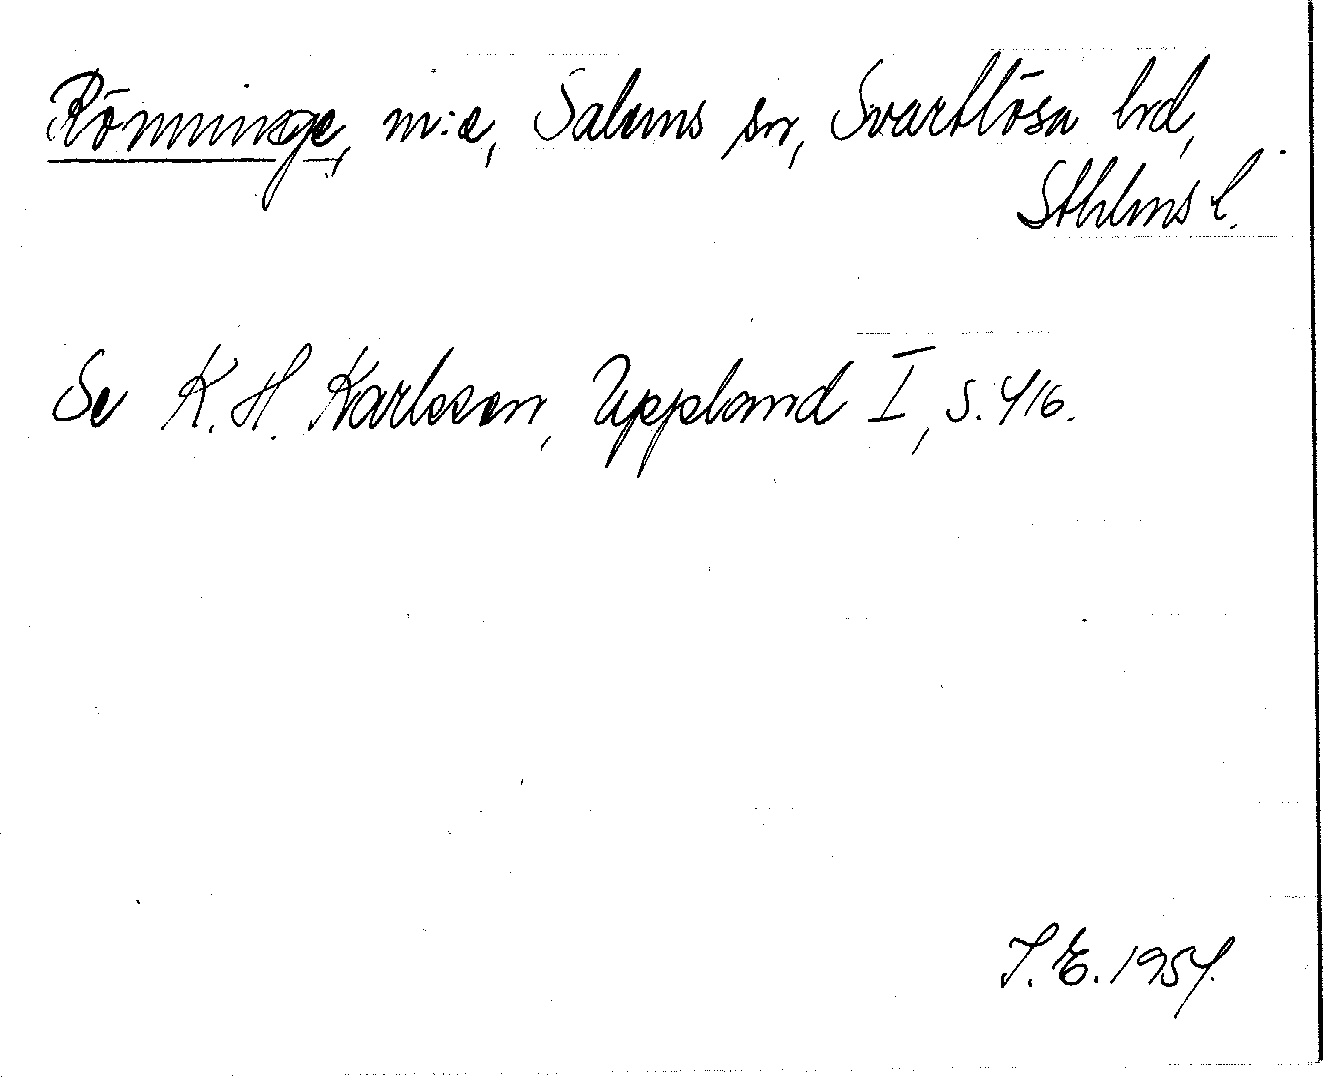 Rönninge, m:e, Salems sn, Svartlösa hd,
Sthlms l.
Se K. H. Karlsson, Uppland I, s. 416.
T. E. 1954.